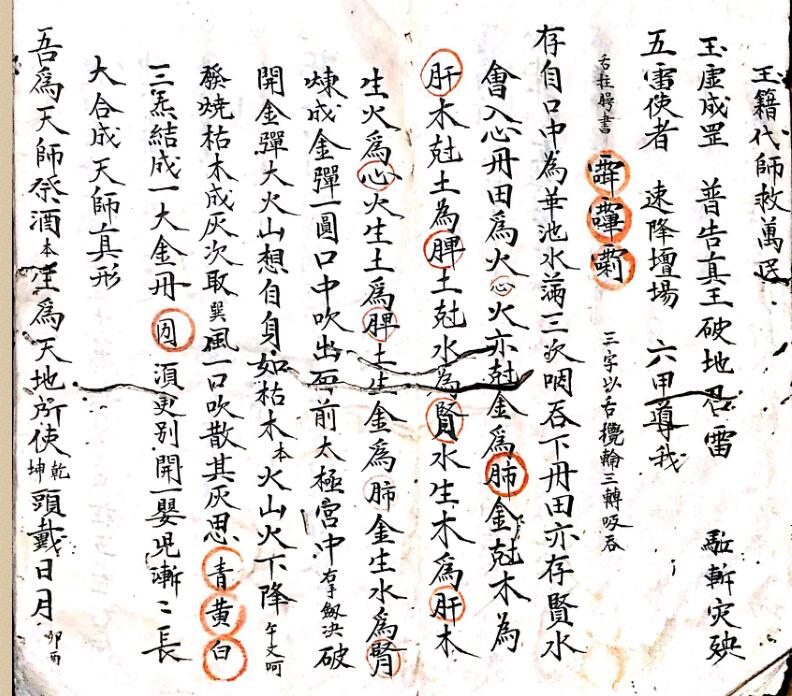 玉籍代師救萬迷
玉虛成罡 普告真王破地召雷 馘斬灾殃
五雷使者 速降壇場 六甲尊我
舌拄腭書 三字以舌攪輪三轉吸吞
存自口中為華池水滿三次咽吞下丹田亦存賢水
會入心丹田為火心火亦尅金為肺金尅木為
肝木尅土為脾土尅水為賢水生木為肝木
生火為心火生土為脾土生金為肺金生水為腎
煉成金彈一圓口中吹出面前太極宮中右手劔決破
開金彈大火山想自身如枯木本火山火下降午文呵
發燒枯木成灰次取巽風一口吹散其灰思青黃白
三炁結成一大金丹囙須更別開一嬰児漸〻長
大合成天師真形
吾為天師祭酒本主為天地所使乾坤頭戴日月卯酉